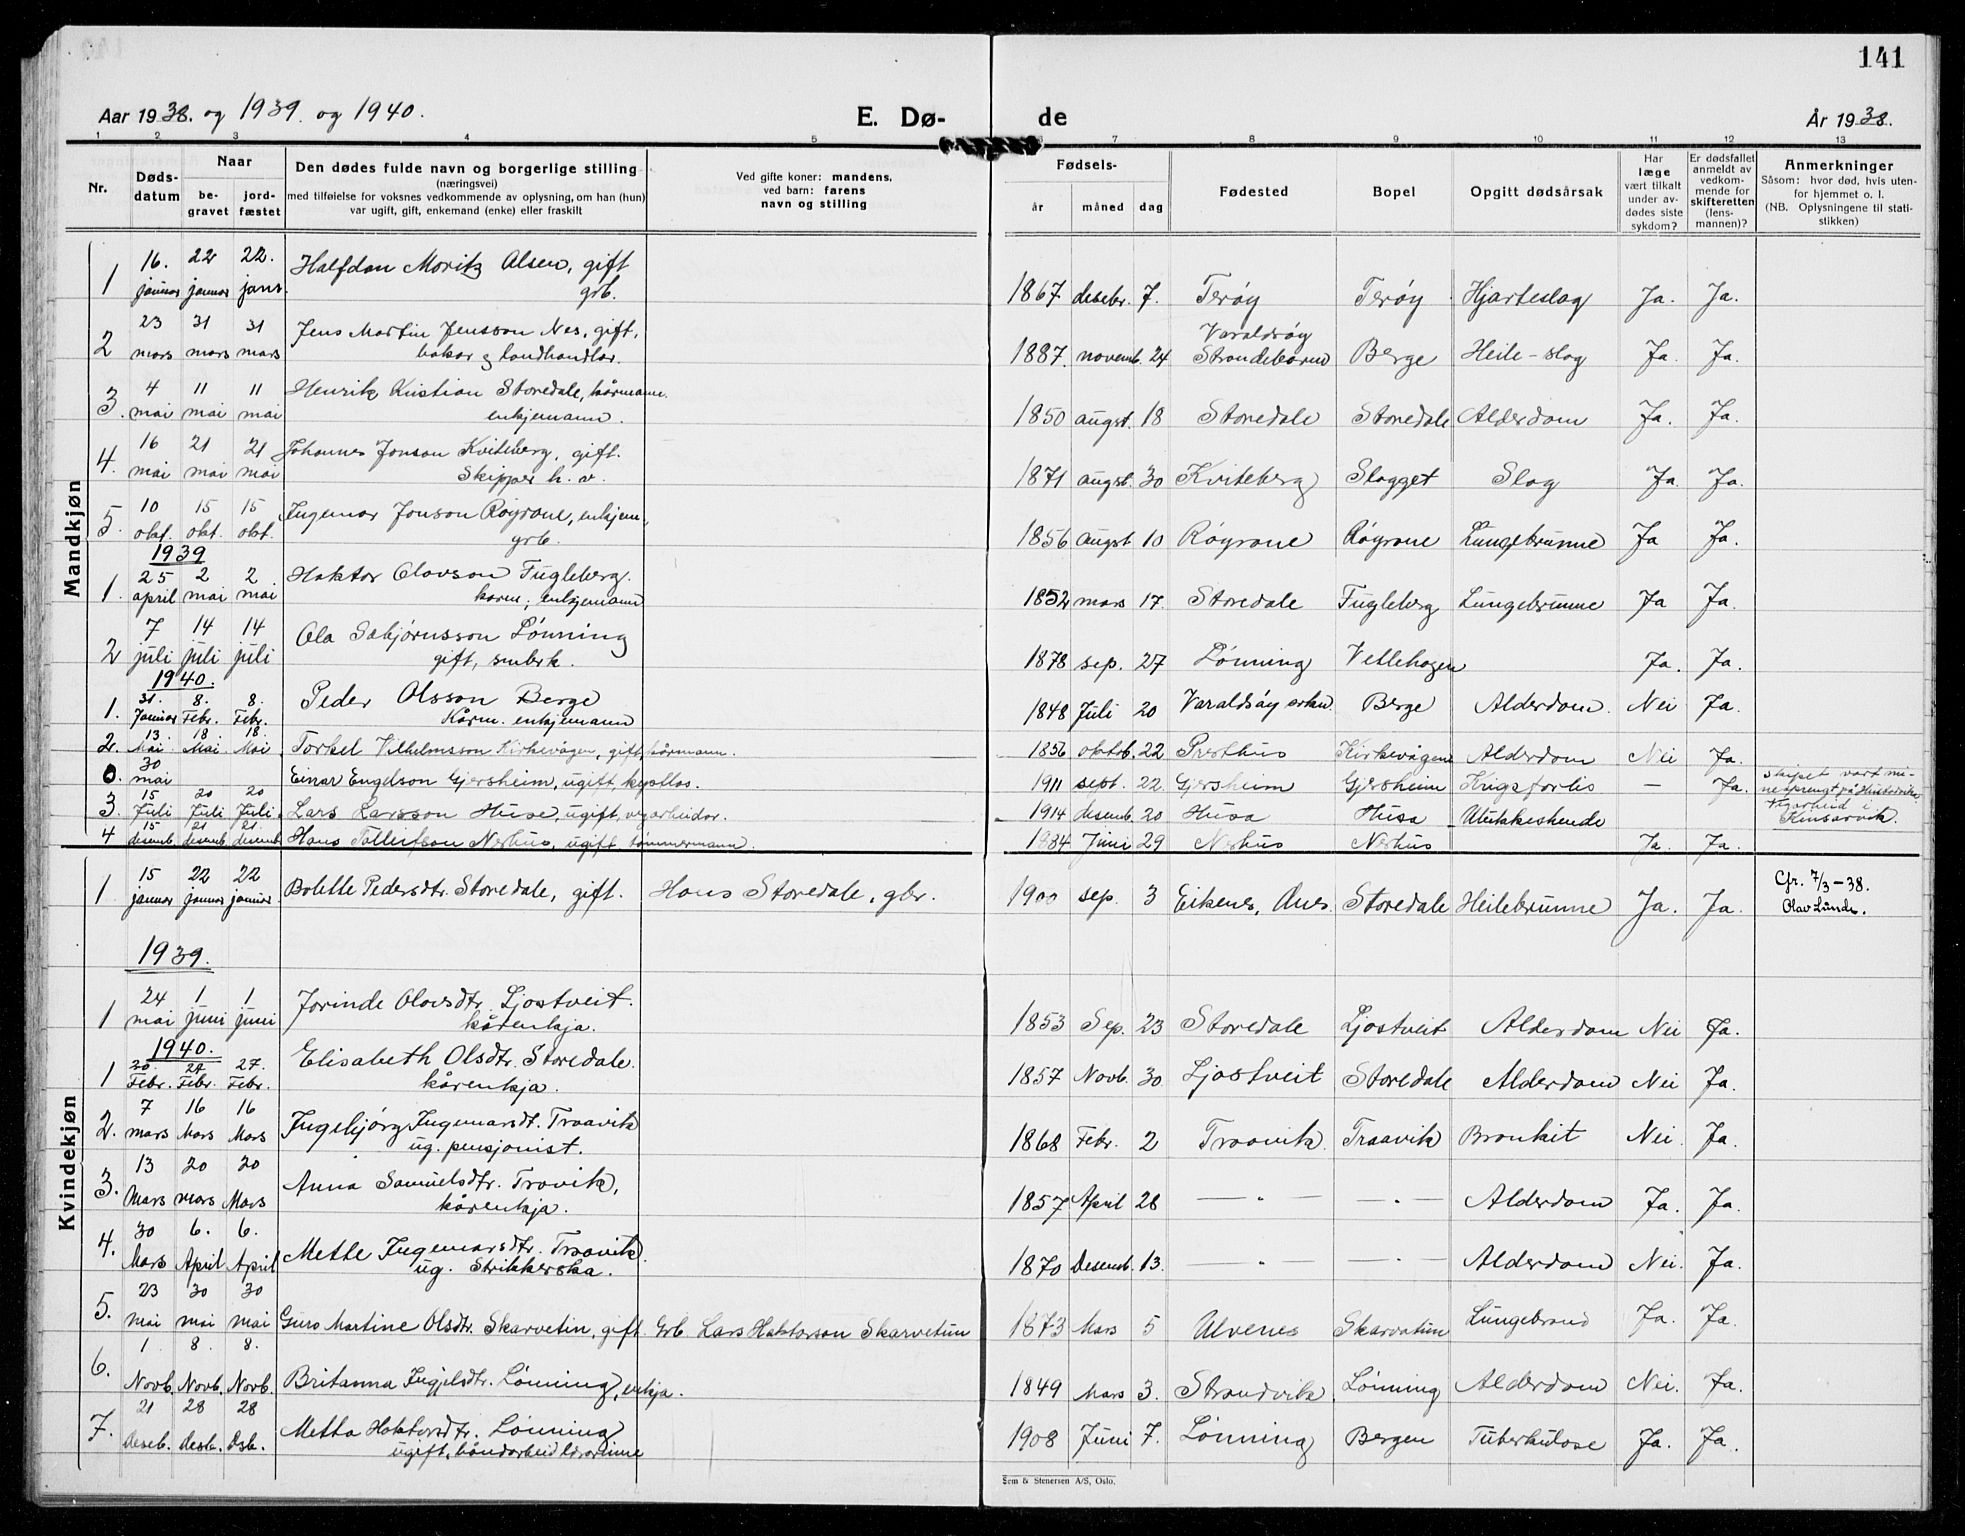 141
Aar 1938. og 1939. og 1940.
E. Dø-
de
År 1938.
1 2 3 4 5 6 7 8 9 10 11 12 13
Nr.
Døds-
datum
Naar
be-
gravet
jord-
fæstet
Den dødes fulde navn og borgerlige stilling
(næringsvei)
med tilføielse for voksnes vedkommende av oplysning, om han (hun)
var ugift, gift, enkemand (enke) eller fraskilt
Ved gifte koner: mandens,
ved barn: farens
navn og stilling
Fødsels-
år måned dag
Fødested
Bopel
Opgitt dødsårsak
Har
læge
vært tilkalt
under av-
dødes siste
sykdom?
Er dødsfallet
anmeldt av
vedkom-
mende for
skifteretten
(lens-
mannen)?
Anmerkninger
Såsom: hvor død, hvis uten-
for hjemmet o. l.
(NB. Oplysningene til stati-
stikken)
Mandkjøn
16. 22 22. Halfdan Moritz Olsen, gift
1 januar januar jans. grb. 1867 desebr. 7. Terøy Terøy Hjarteslag Ja. Ja.
23 31 31 Jens Martin Jensson Nes, gift, Varaldsøy
2 mars mars mars bakar g landhandlar. 1887. novemb. 24 Strandebarm Berge Heile-slag Ja. Ja.
4 11 11 Henrik Kristian Storedale, kårmann.
3. mai mai mai enkjemann. 1850 augst. 18 Storedale Storedale Alderdom Ja. Ja.
16 21 21 Johannes Jonson Kviteberg, gift.
4. mai mai mai Skipper h. a. 1871 augst. 30 Kviteberg Slagget Slag Ja. Ja.
10 15 15 Ingemar Jonson Røyrane, enkjem.,
5. okt. okt. okt. grb. 1856 augst 10 Røyrane Røyrane Lungebrunne Ja Ja.
1939
25 2 2 Haktor Olavson Fugleberg.
1. april mai mai karm; enkjemann 1852 mars 17. Storedale Fugleberg Lungebrunne Ja Ja.
7 14 14 Ola Sabjørnsson Lønning
2 juli juli juli gift, smbrk. 1878 sep. 27 Lønning Vetlehagen Ja. Ja.
1940.
31. 8. 8. Peder Olsson Berge
1. Januar Febr. Febr. Kårm. enkjemann 1848 Juli 20 Varaldsøy Berge Alderdom. Nei Ja.
13. 18 18.
2. Mai Mai Mai Torkel Vilhelmsson Kirkevågen, gift, kårmann. 1856 oktob. 22 Presthus Kirkevågen Alderdom Nei Ja.
30
0. mai Einar Engelson Gjersheim, ugift, 1911 sept. 22. Gjersheim Gjersheim Krigsforlis — Ja. skipet vart mi-
nesprengt på
15 20 20
3. Juli Juli Juli Lars Larsson Husa, ugift, vegarbeidar. 1914 desemb. 20 Husa Husa Ulukkeshende Vegarbeid i
Kinsarvik.
15 21 21.
4 desemb. desemb desemb Hans Tolleifson Nerhus, ugift tømmermann. 1884 Juni 29 Nerhus Nerhus Ja. Ja.
Kvindekjøn
15 22 22
1 januar januar januar Bolette Pedersdtr. Storedale, gift. Hans Storedale, gbr. 1900 sep. 3 Eikenes, Ja. Storedale Heilebrunne Ja. Ja. Cfr. 7/3-38.
Olav Lunde.
1939.
24 1 1 Jorinde Olavsdtr. Ljostveit.
1 mai juni juni kårenkja. 1853 Sep. 23 Storedale Ljostveit Alderdom Nei Ja.
1940.
20. 27 27. Elisabeth Olsdtr. Storedale.
1 Febr. Febr. Febr. kårenkja. 1857 Novb. 30 Ljostveit Storedale Alderdom Nei Ja.
7 16 16 Ingebjörg Ingemarsdt. Traavik
2. mars Mars Mars ug. pensjonist. 1868 Febr. 2 Traavik Traavik Bronkit Nei. Ja.
13 20 20 Anna Samuelsdtr. Travik,
3. Mars mars Mars kårenkja. 1857 April 28 —„— —„— Alderdom Ja. Ja.
30 6. 6. Mette Ingemarsdtr. Traavik
4. Mars April April ug. Strikkerska. 1870 Desemb. 13. —„— —„— Alderdom Nei. Ja.
23 30 30
5. mai mai mai Guro Martine Olsdtr. Skarvetun, gift. Grb. Lars Haktorson Skarvetun 1873 Mars 5 Alvenes Skarvatun Lungebrand Ja. Ja.
1 8. 8.
6. Novb. Novb. Novb. Britanna Ingjelsdtr. Lønning, enkja. 1849 Mars 3. Strandvik Lønning Alderdom Nei. Ja.
21 28 28 Metta Haktorsdtr. Lønning
7. Deseb. Desb. Dsb. ugift, håndarbeid lærarinne 1908 Juni 7. Lønning Bergen Tuberkulose Ja. Ja.
Sem & Stenersen A/S, Oslo.